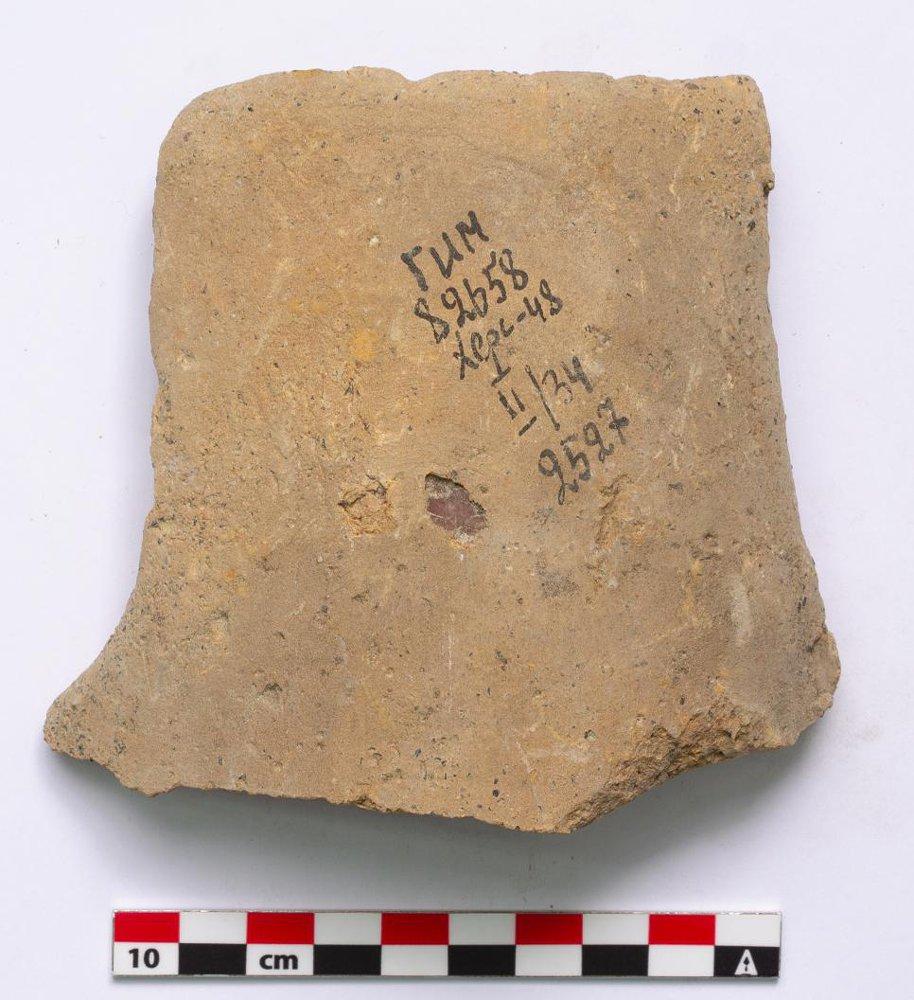 ГИМ
82658
Херс-48
I
II/34
2527
10 cm